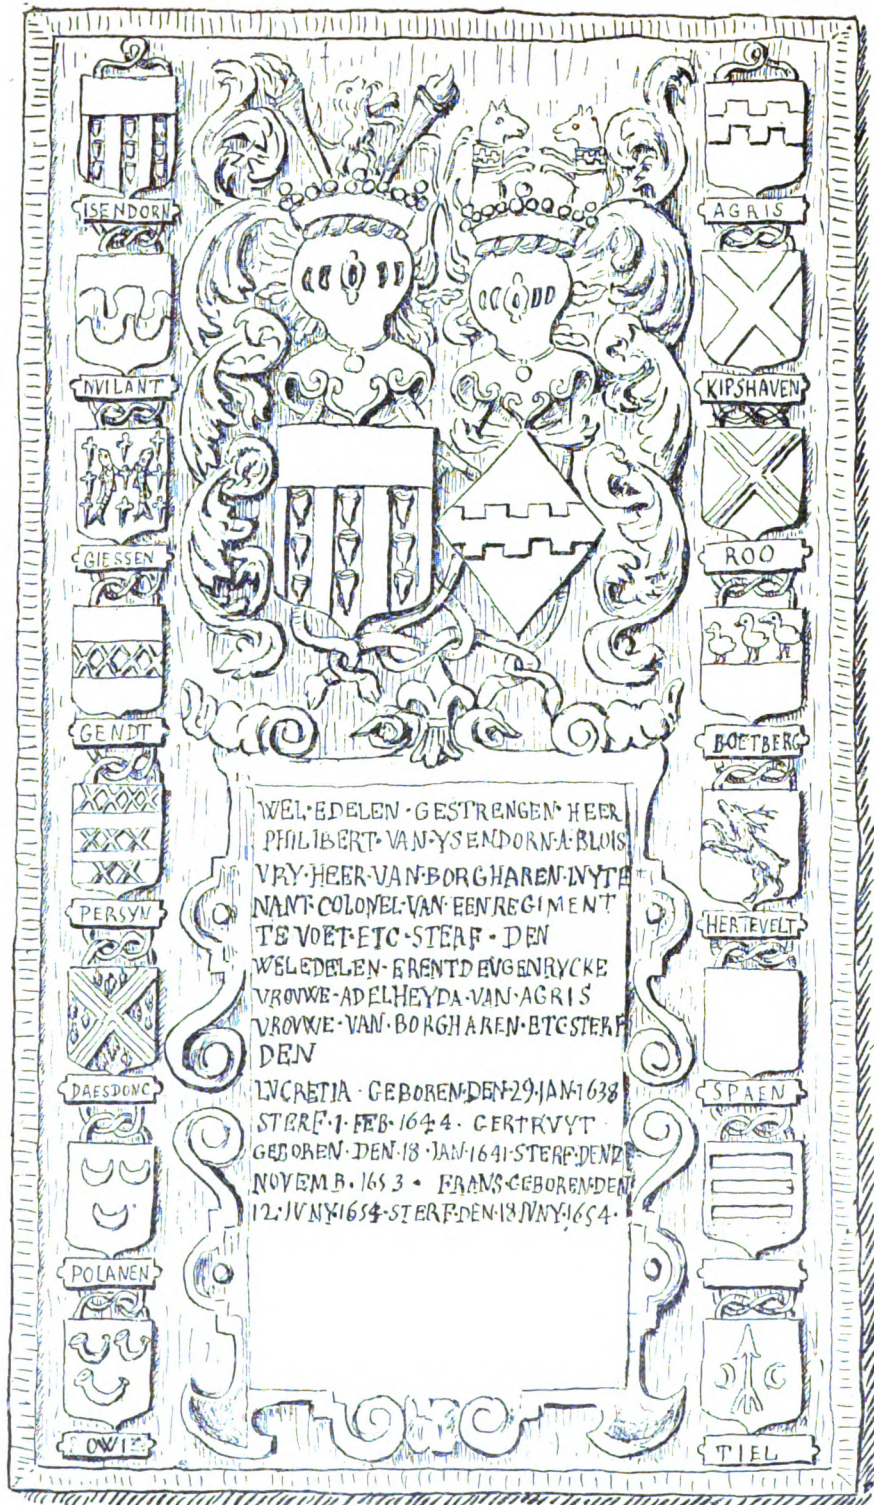 ISENDORN
NVILANT
GIESSEN
GENDT
PERSYN
DAESDONC
POLANEN
AGRIS
KIPSHAVEN
ROO
BOETBERG
HERTEVELT
SPAEN
TIEL
WEL·EDELEN·GESTRENGEN·HEER
PHILIBERT·VAN·YSENDORN·A·BLOIS
VRY·HEER·VAN·BORGHAREN·LVYTE
NANT·COLONEL·VAN·EEN REGIMENT
TE VOET·ETC·STERF·DEN
WELEDELEN·ERENTDEVGENRYCKE
VROVWE·ADELHEYDA·VAN·AGRIS
VROVWE·VAN·BORGHAREN·ETC STERF
DEN
LVCRETIA·GEBOREN·DEN·29·JAN·1638
STERF·1·FEB·1644·GERTRVYT·
GEBOREN·DEN·18·JAN·1641·STERF·DEN 2
NOVEMB.1653·FRANS·GEBOREN·DEN
12·JVNY·1654·STERF·DEN·18 JVNY·1654·